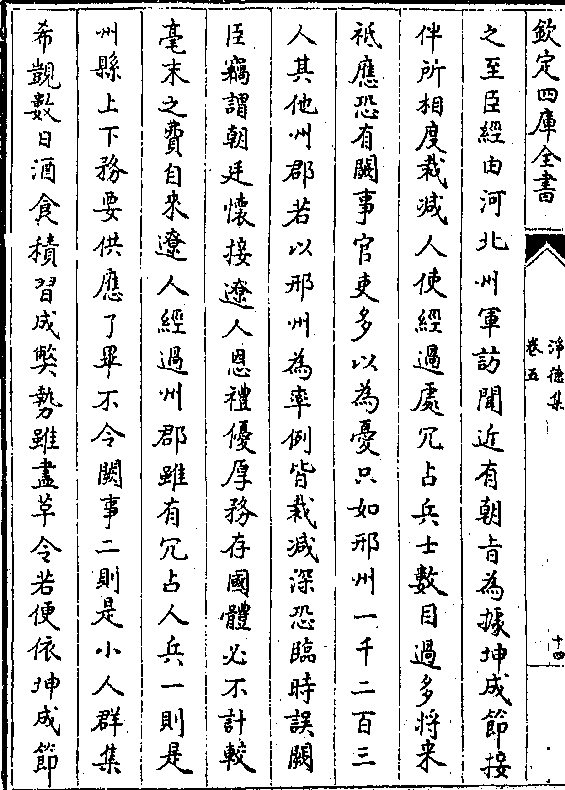 欽定四庫全書
淨德集
卷五
十四
之至臣經由河北州軍訪聞近有朝㫖為據坤成節接
伴所相度裁減人使經過處冗占兵士數目過多將来
祗應恐有闕事官吏多以為憂只如邢州一千二百三
人其他州郡若以邢州為率例皆裁減深恐臨時誤闕
臣竊謂朝廷懷接遼人恩禮優厚務存國體必不計較
毫末之費自來遼人經過州郡雖有冗占人兵一則是
州縣上下務要供應了畢不令闕事二則是小人群集
希覬數日酒食積習成獘勢雖盡革今若便依坤成節